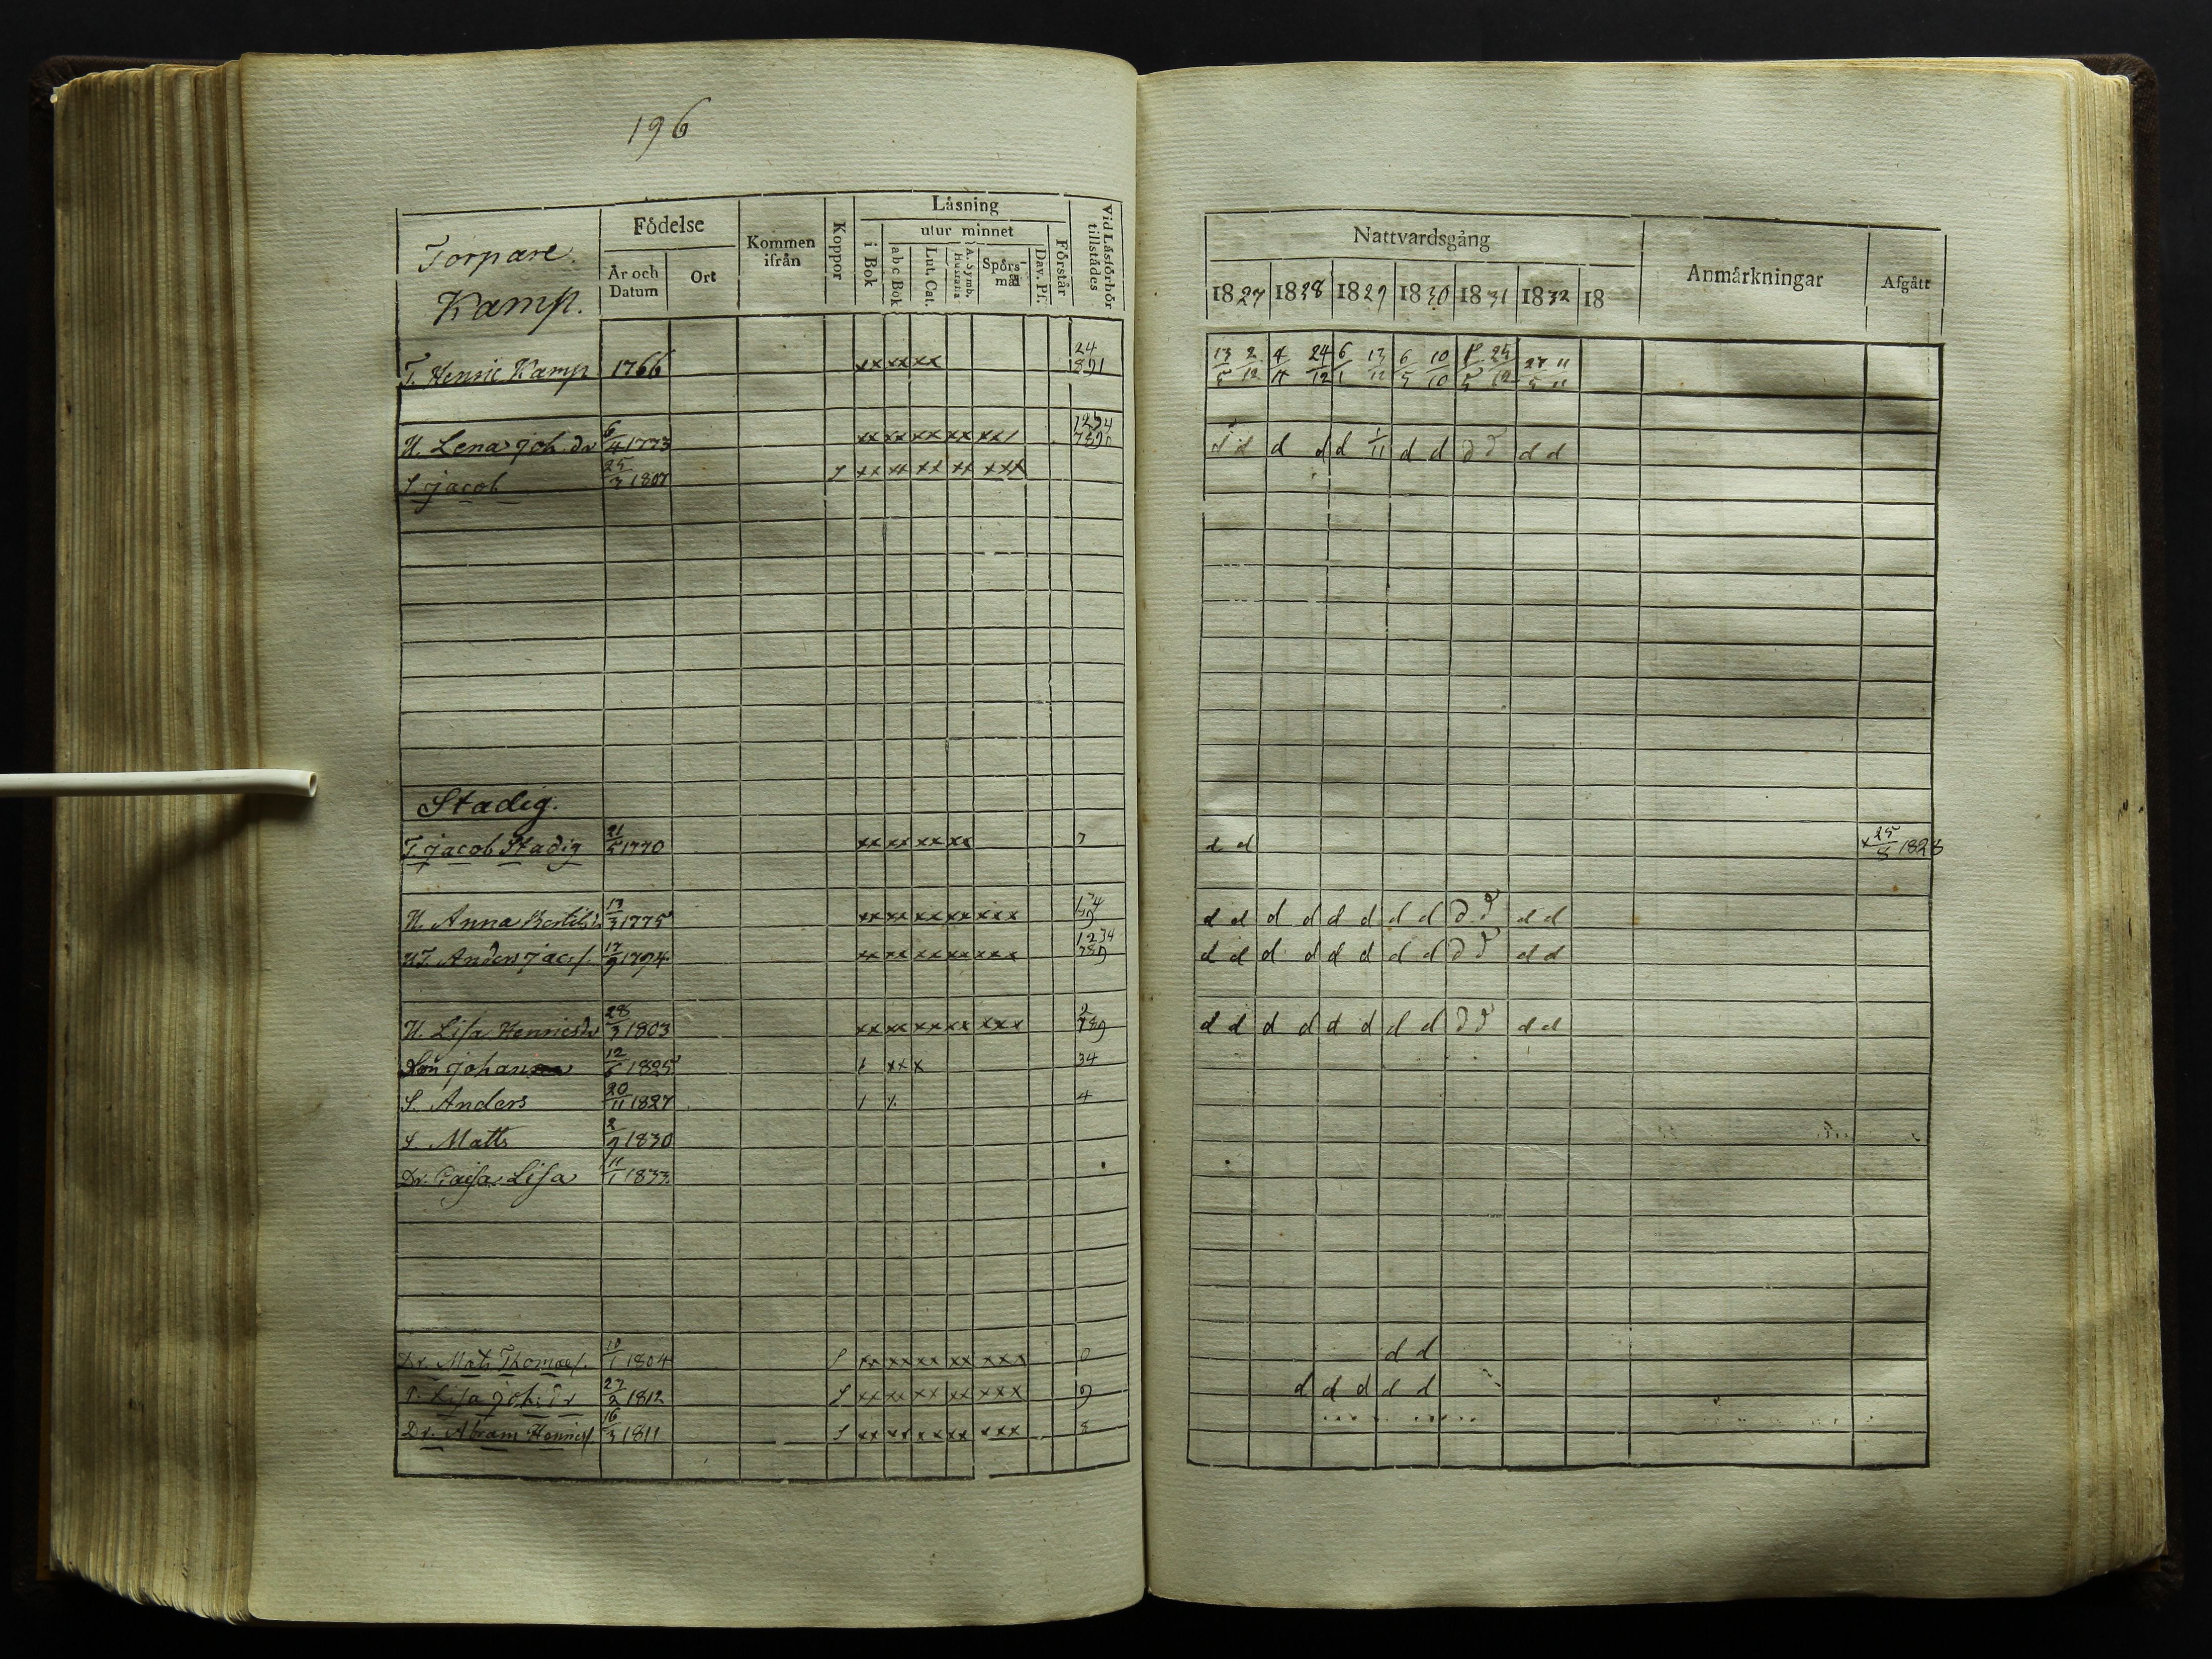 196
Torpare Kamp.
Födelse
År och Datum
Ort
Kommen ifrån
Koppor
Låsning
i Bok
utur minnet
a b c Bok
Lut. Cat.
A. Symb. Hustafla
Spörsmål
Dav. Ps.
Förstår
Vid Låsförhör tillstådes
T. Henric Kamp 1766 xx xx xx 24 891
H. Lena Joh. dr 6/4 1773 xx xx xx xx xx/ 1234 789
S. Jacob 25/3 1807 S xx xx xx xx xxx
Stadig.
T. Jacob Stadig 21/5 1770 xx xx xx xx 7
H. Anna Bertilsd. 13/3 1775 xx xx xx xx xxx
Anders Jacs. 17/9 1794 xx xx xx xx xxx 1234 789
H. Lisa Henricsdr 28/3 1803 xx xx xx xx xxx 2 789
Son Johan 12/6 1825 34
S. Anders 20/11 1827 4
S. Matts 2/9 1830
Dr. Cajsa Lisa 11/1 1833
Dr. Mats Thomæs. 10/1 1804 S xx xx xx xx xxx 0
P. Lisa Joh. dr 27/2 1812 S xx xx xx xx xxx 9
Dr. Abram Henrics. 16/3 1811 S xx xx xx xx xxx 8
Nattvardsgång
1827 1828 1829 1830 1831 1832 18
Anmårkningar
Afgått
13/5 2/12 4/4 24/12 6/1 13/12 6/5 10/10 25/12 27/5 11/11
d d d d d 1/11 d d d d d d
d d × 25/8 1828
d d d d d d d d d d d d
d d d d d d d d d d d d
d d d d d d d d d d d d
d d
d d d d d